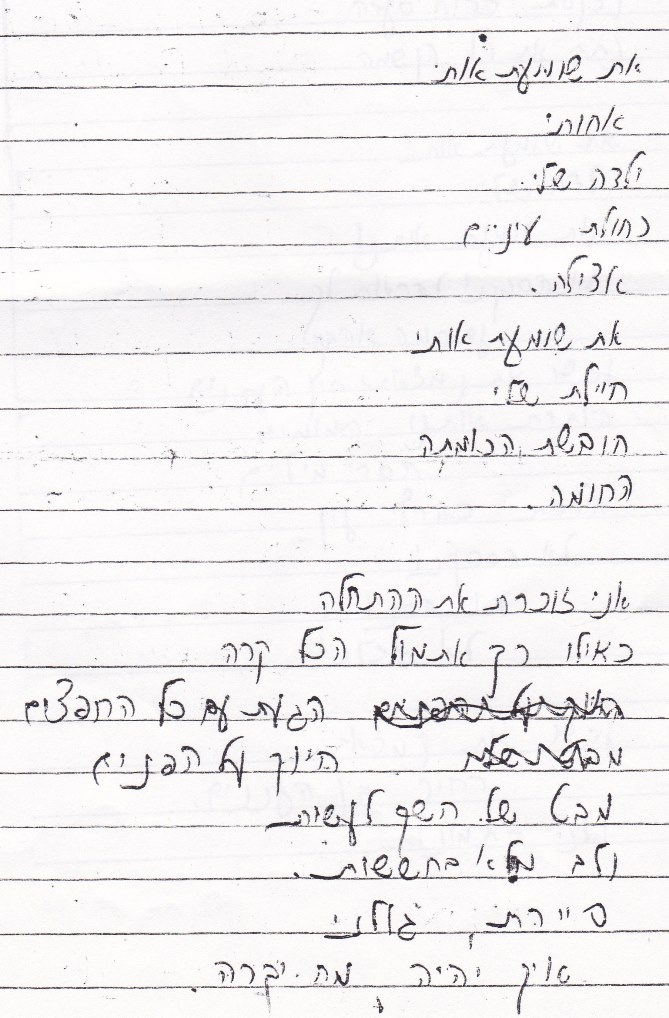 את שומעת אותי
אחותי
ילדה שלי
כחולת עיניים
אצילה
את שומעת אותי
חיילת שלי
חובשת הכומתה
החומה.
אני זוכרת את ההתחלה
כאילו רק אתמול הכל קרה
הגעת עם כל החפצים
חיוך על הפנים
מבט של השף לעשות
ולב מלא בחששות.
סיירת גולני
איך יהיה מה יקרה